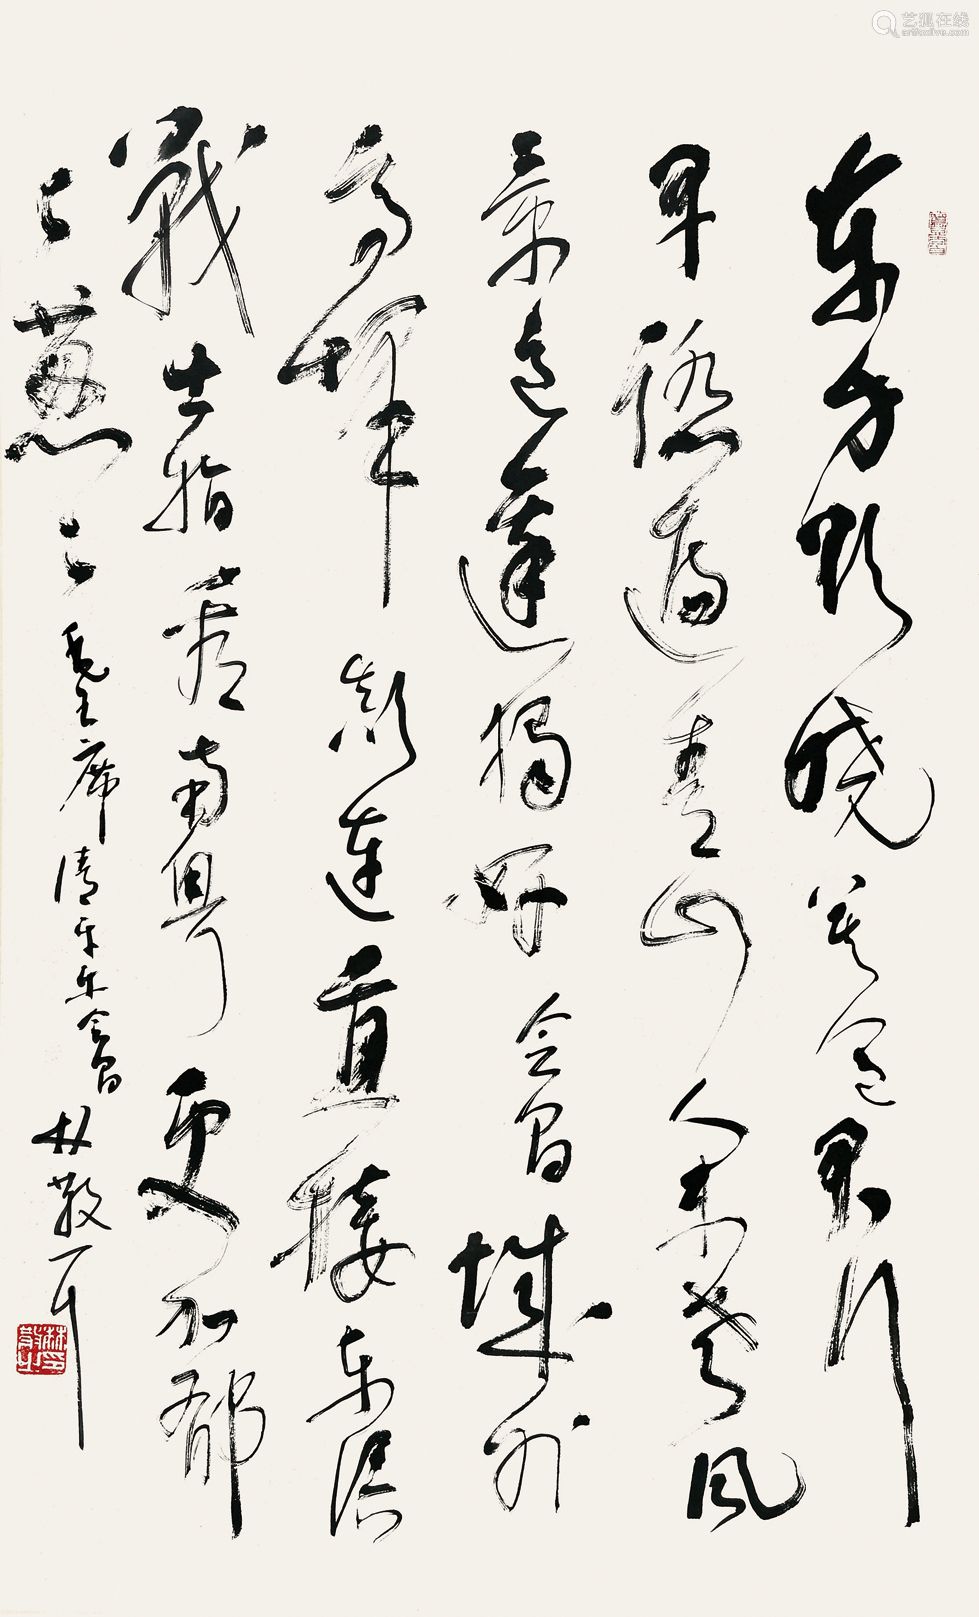 东方欲晓莫道君行
早踏遍青山人未老风
景这边独好会昌城外
高峰颠连直接东溟
戰士指看南粤更加郁
々葱々毛主席清平乐会昌 林散耳
林散之印
艺狐在线
artfoxlive.com